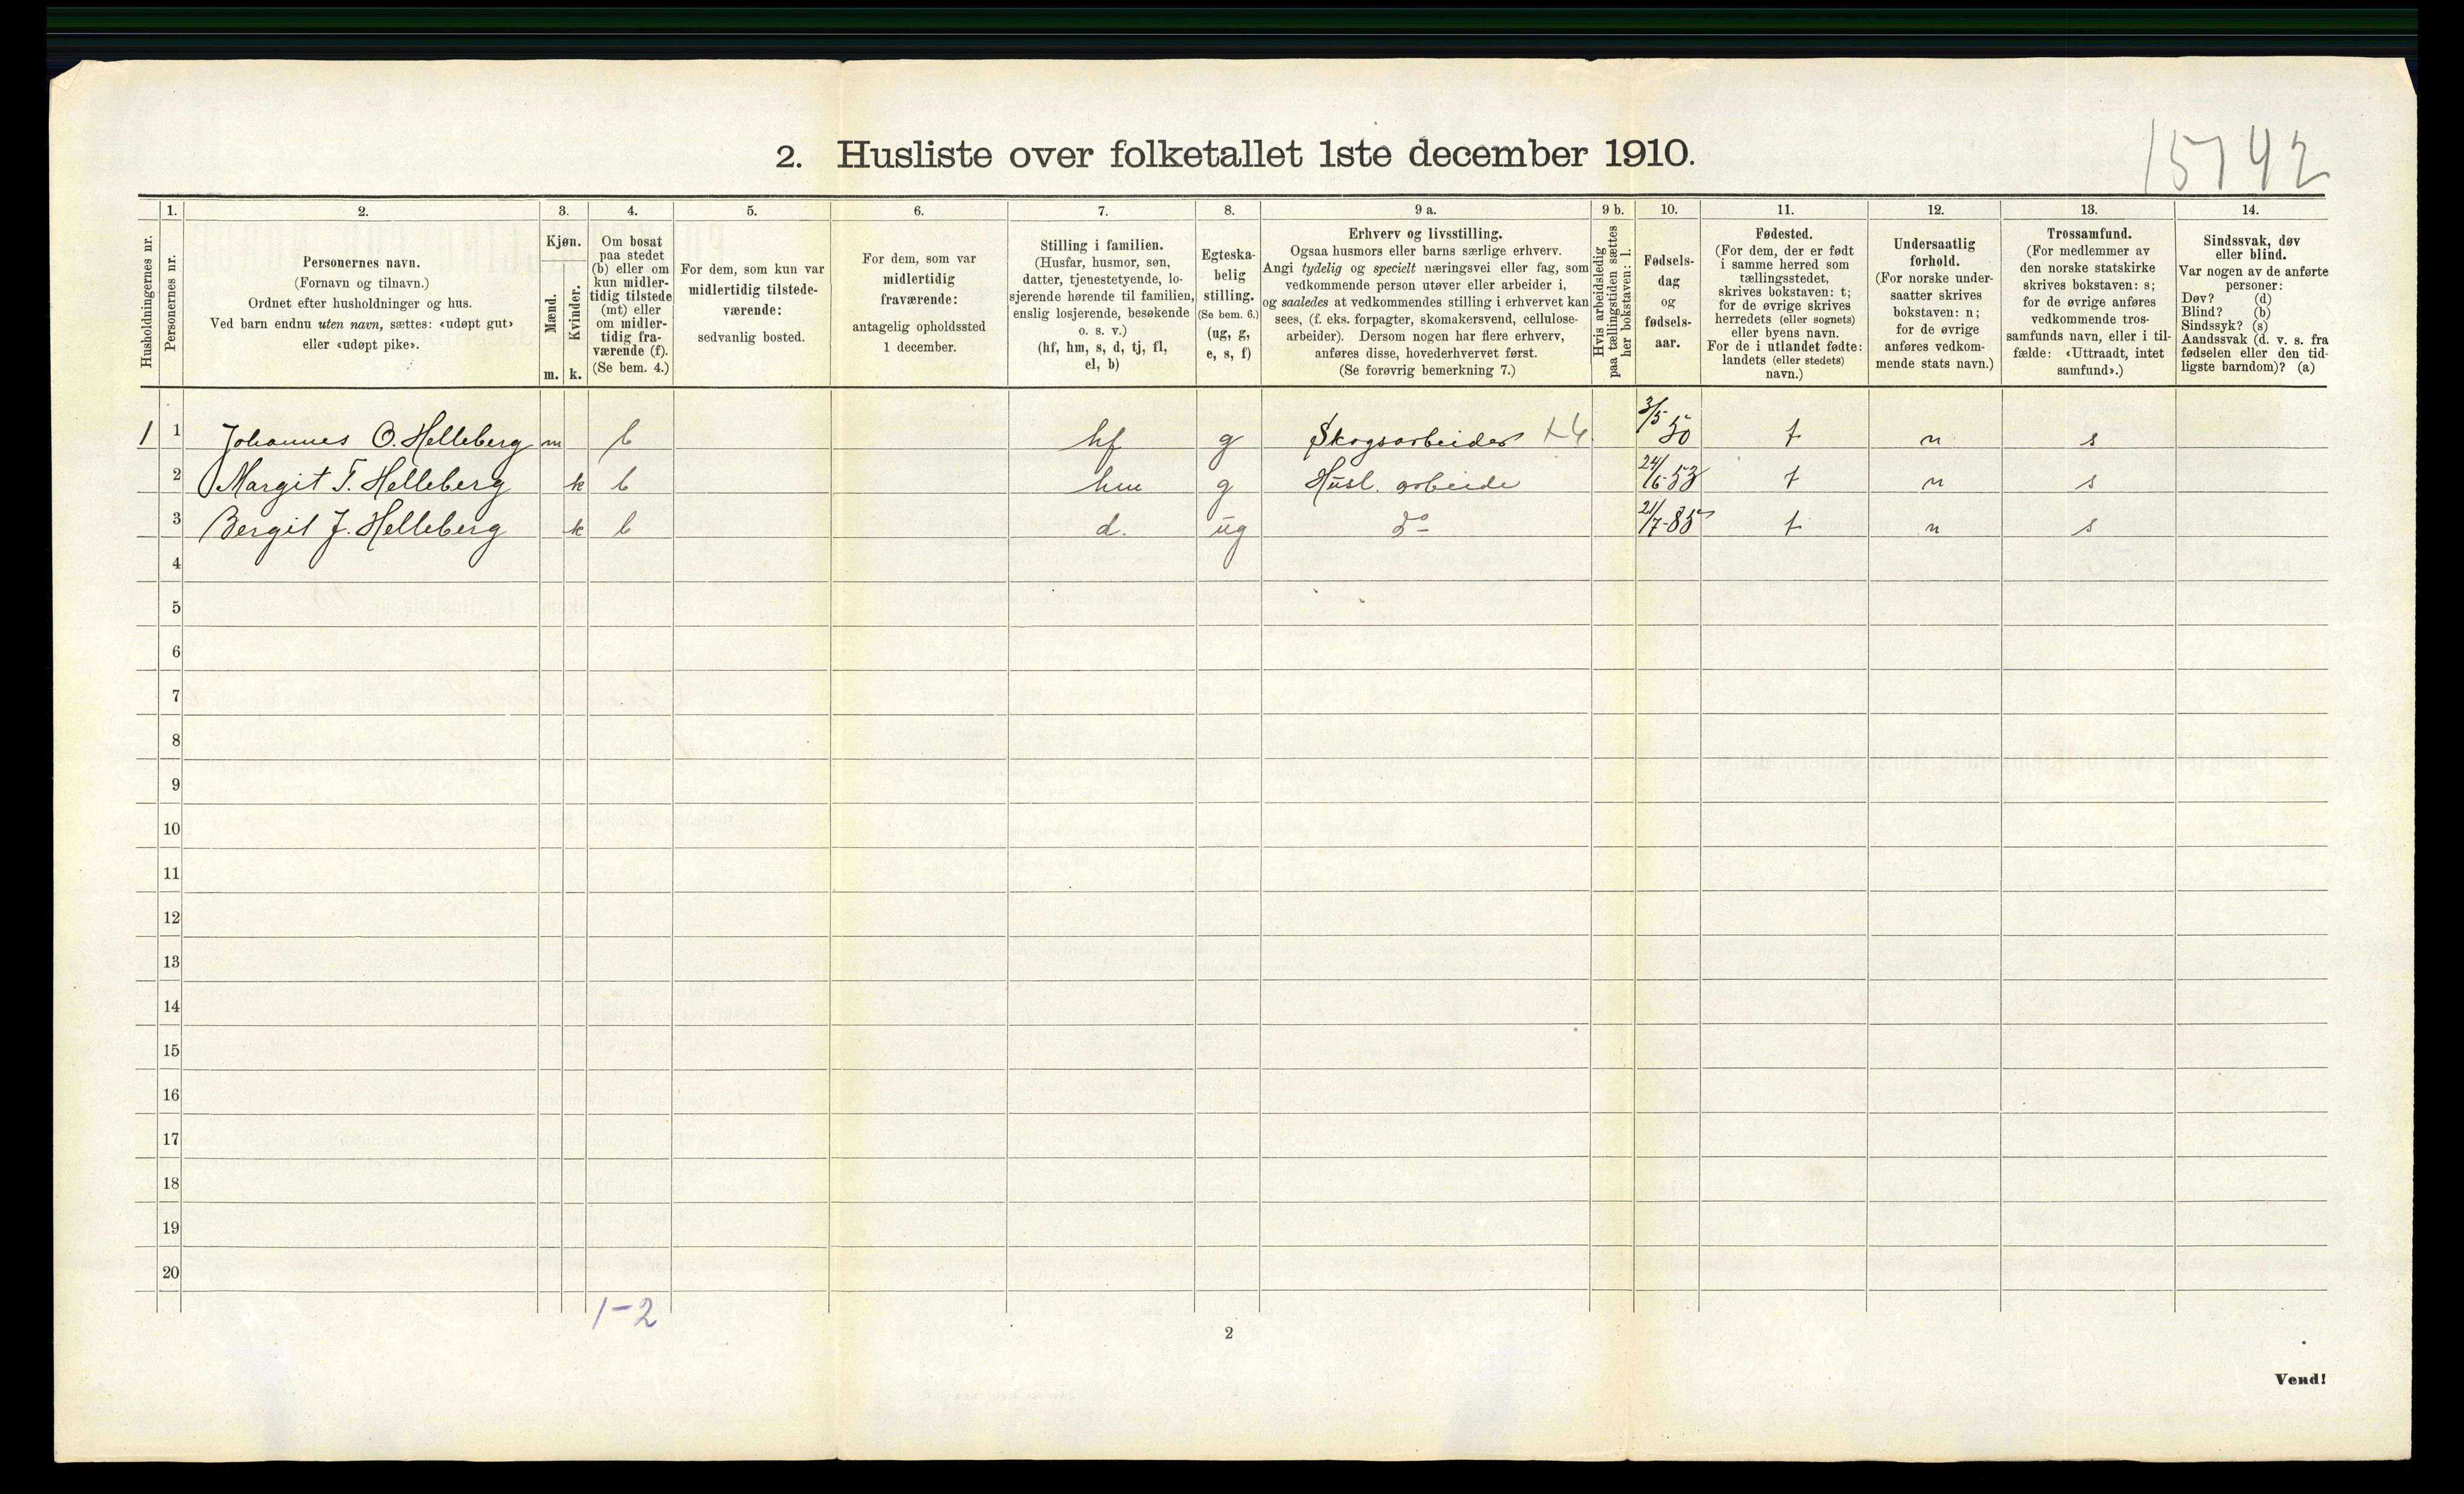 15742
2. Husliste over folketallet 1ste december 1910.
1. 2. 3. 4. 5. 6. 7. 8. 9 a. 9 b. 10. 11. 12. 13. 14.
Husholdningernes nr.
Personernes nr.
Personernes navn.
(Fornavn og tilnavn.)
Ordnet efter husholdninger og hus.
Ved barn endnu uten navn, sættes: «udøpt gut»
eller «udøpt pike».
Kjøn.
Mænd.
Kvinder.
m. k.
Om bosat
paa stedet
(b) eller om
kun midler-
tidig tilstede
(mt) eller
om midler-
tidig fra-
værende (f).
(Se bem. 4.)
For dem, som kun var
midlertidig tilstede-
værende:
sedvanlig bosted.
For dem, som var
midlertidig
fraværende:
antagelig opholdssted
1 december.
Stilling i familien.
(Husfar, husmor, søn,
datter, tjenestetyende, lo-
sjerende hørende til familien,
enslig losjerende, besøkende
o. s. v.)
(hf, hm, s, d, tj, fl,
el, b)
Egteska-
belig
stilling.
(Se bem. 6.)
(ug, g,
e, s, f)
Erhverv og livsstilling.
Ogsaa husmors eller barns særlige erhverv.
Angi tydelig og specielt næringsvei eller fag, som
vedkommende person utøver eller arbeider i,
og saaledes at vedkommendes stilling i erhvervet kan
sees, (f. eks. forpagter, skomakersvend, cellulose-
arbeider). Dersom nogen har flere erhverv,
anføres disse, hovederhvervet først.
(Se forøvrig bemerkning 7.)
Hvis arbeidsledig
paa tællingstiden sættes
her bokstaven: l.
Fødsels-
dag
og
fødsels-
aar.
Fødested.
(For dem, der er født
i samme herred som
tællingsstedet,
skrives bokstaven: t;
for de øvrige skrives
herredets (eller sognets)
eller byens navn.
For de i utlandet fødte:
landets (eller stedets)
navn.)
Undersaatlig
forhold.
(For norske under-
saatter skrives
bokstaven: n;
for de øvrige
anføres vedkom-
mende stats navn.)
Trossamfund.
(For medlemmer av
den norske statskirke
skrives bokstaven: s;
for de øvrige anføres
vedkommende tros-
samfunds navn, eller i til-
fælde: «Uttraadt, intet
samfund».)
Sindssvak, døv
eller blind.
Var nogen av de anførte
personer:
Døv? (d)
Blind? (b)
Sindssyk? (s)
Aandssvak (d. v. s. fra
fødselen eller den tid-
ligste barndom)? (a)
1 1 Johannes O. Helleberg m b hf g Skogsarbeider 3/5 50 t n s
2 Margit T. Helleberg k b hm g Husl. arbeide 24/6-53 t n s
3 Bergit J. Helleberg k b d. ug do 21/7-85 t n s
4
5
6
7
8
9
10
11
12
13
14
15
16
17
18
19
20
1-2
2
Vend!